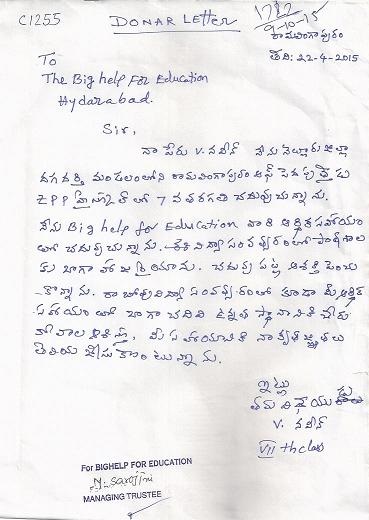 C1255
DONAR Letter
1782
9-10-15
రామలింగాపురం
తేది: 22-4-2015
To
The Big help For Education
Hyderabad.
Sir,
నా పేరు V. నవీన్ నేను నెల్లూరు జిల్లా
దగదర్తి మండలంలోని రామలింగాపురం
ZPP హైస్కూల్ లో 7 వ తరగతి చదువుచున్నాను.
నేను Big help for Education వారి ఆర్థిక సహాయం
తో చదువుచున్నాను. విద్యా సంవత్సరంలో పాఠశాల
కు బాగా హాజరైయాను. చదువు పట్ల ఆసక్తి పెంచు
-కొన్నాను. రాబోవు విద్యా సంవత్సరంలో కూడా మీ ఆర్థిక
సహాయం తో బాగా చదివి ఉన్నత స్థానానికి చేరు
కోవాలని ఆశిస్తూ, మీ సహాయానికి నా కృతజ్ఞతలు
తెలియజేసుకుంటున్నాను.
ఇట్లు
తమ విధేయుడు
V. నవీన్
VII th class
For BIGHELP FOR EDUCATION
N. Sarojini
MANAGING TRUSTEE